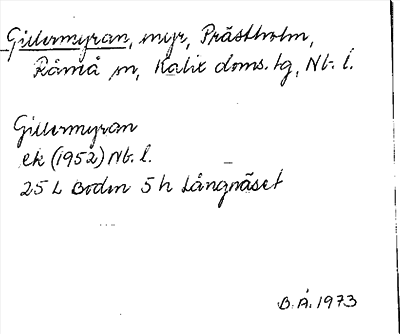 Gillermyran, myr, Prästholm,
Råneå sn, Kalix doms. tg, Nb. l.
Gillermyran
ek (1952) Nb. l.
25 L Boden 5 h Långnäset
B.Å. 1973